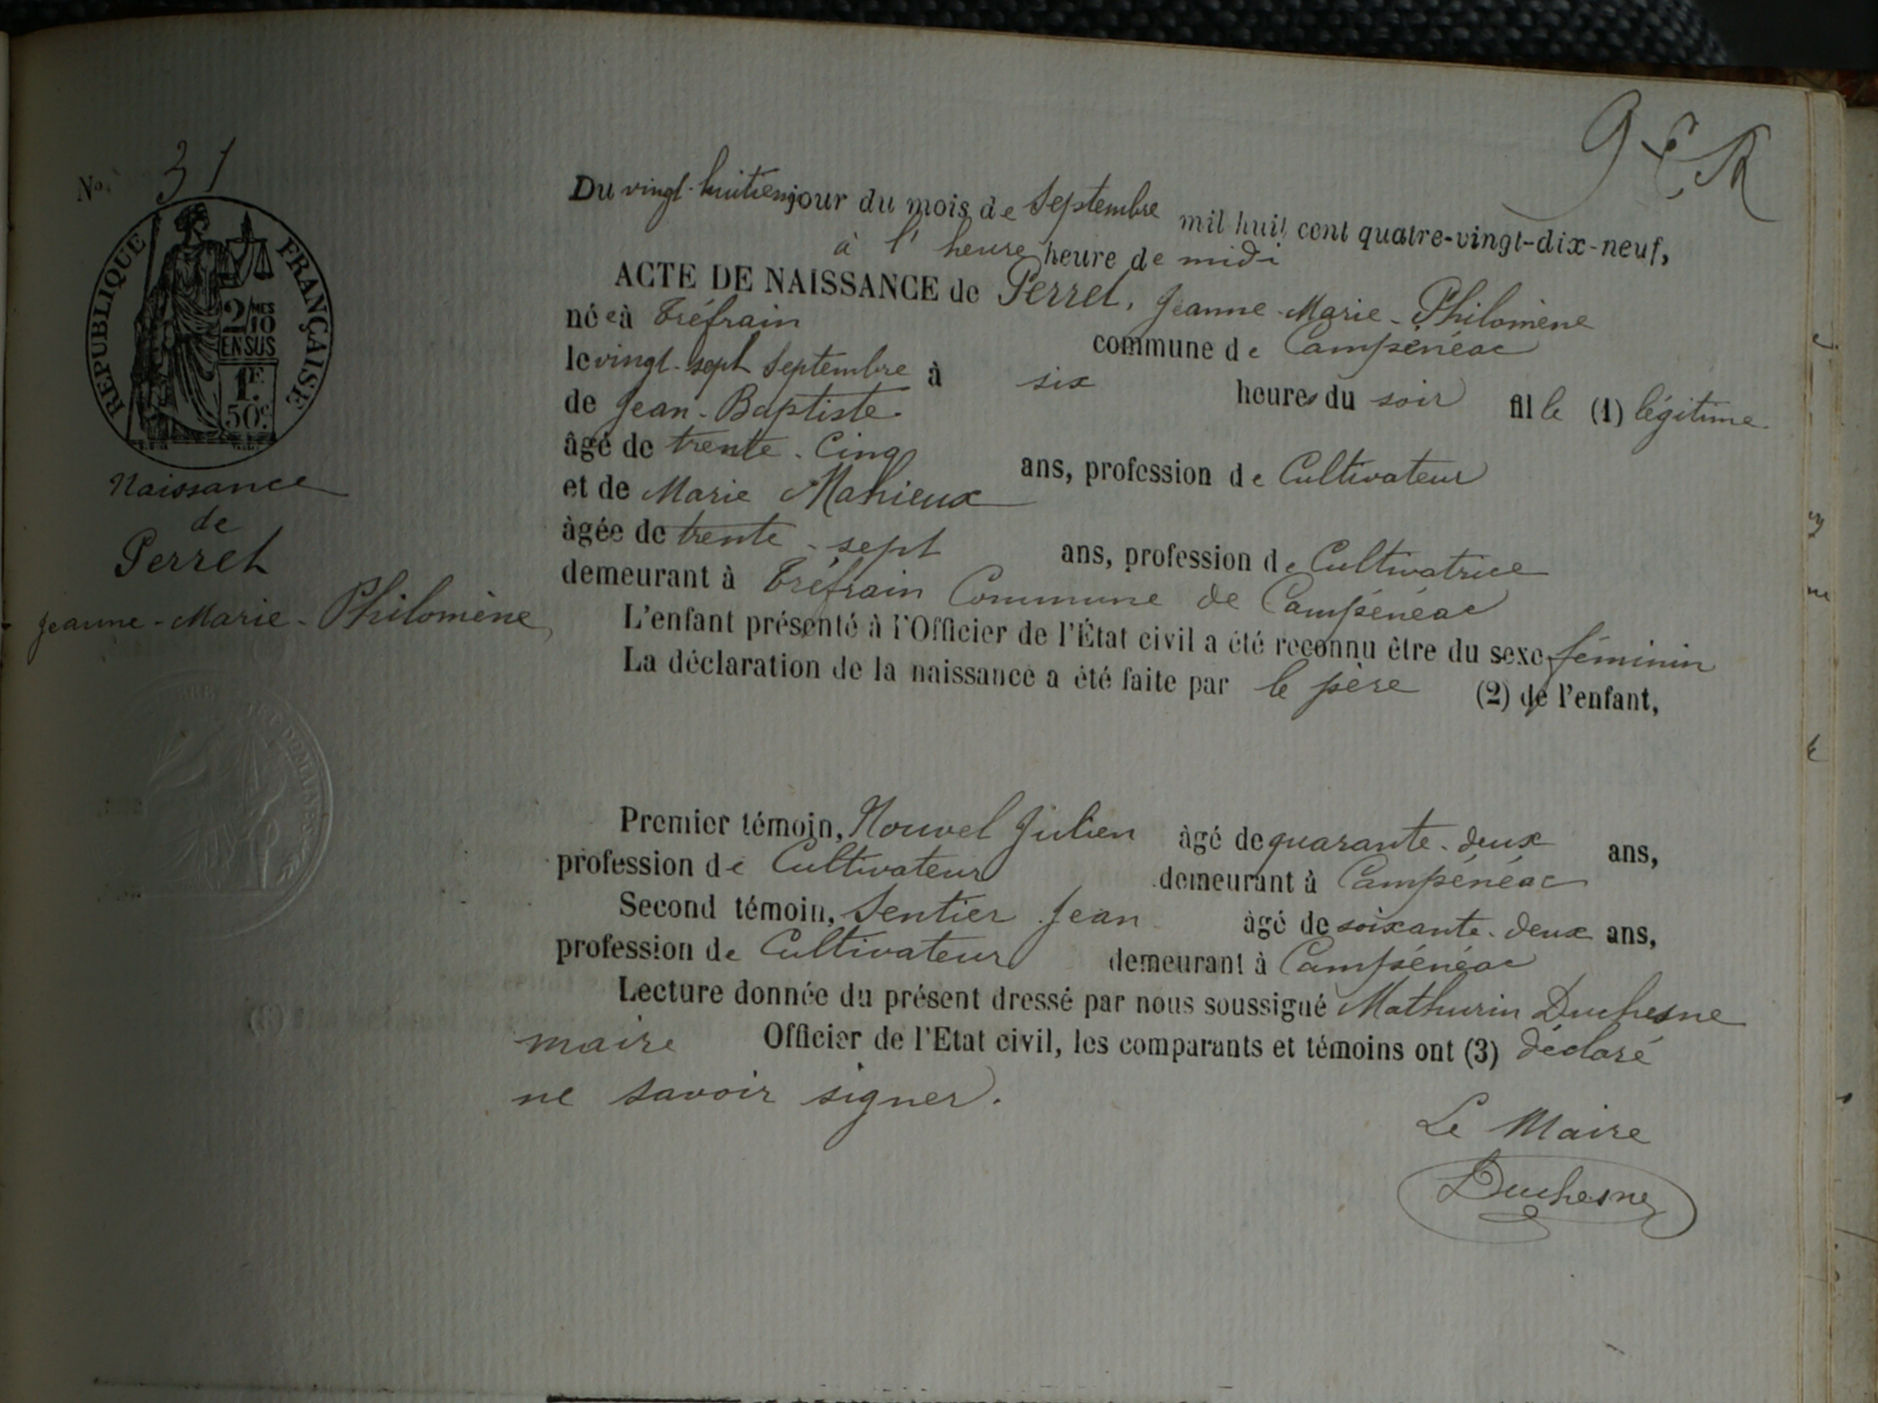 N° 31
RÉPUBLIQUE FRANÇAISE
2/10 MES
EN SUS
1F
50c
Naissance
de
Perret
Jeanne-Marie-Philomène
Du vingt-huitièm jour du mois de Septembre mil huit cent quatre-vingt-dix-neuf,
à l'heure heure de midi
ACTE DE NAISSANCE de Perret, Jeanne-Marie-Philomène
née à Tréfrain commune de Campénéac
le vingt-sept Septembre à six heures du soir fille (1) légitime
de Jean-Baptiste
âgé de trente-cinq ans, profession de Cultivateur
et de Marie Mahieux
âgée de trente-sept ans, profession de Cultivatrice
demeurant à Tréfrain Commune de Campénéac
L'enfant présenté à l'Officier de l'État civil a été reconnu être du sexe féminin
La déclaration de la naissance a été faite par le père (2) de l'enfant,
Premier témoin, Nouvel Julien âgé de quarante-deux ans,
profession de Cultivateur demeurant à Campénéac
Second témoin, Sentier Jean âgé de soixante-deux ans,
profession de Cultivateur demeurant à Campénéac
Lecture donnée du présent dressé par nous soussigné Mathurin Duchesne
maire Officier de l'Etat civil, les comparants et témoins ont (3) déclaré
ne savoir signer.
Le Maire
Duchesne